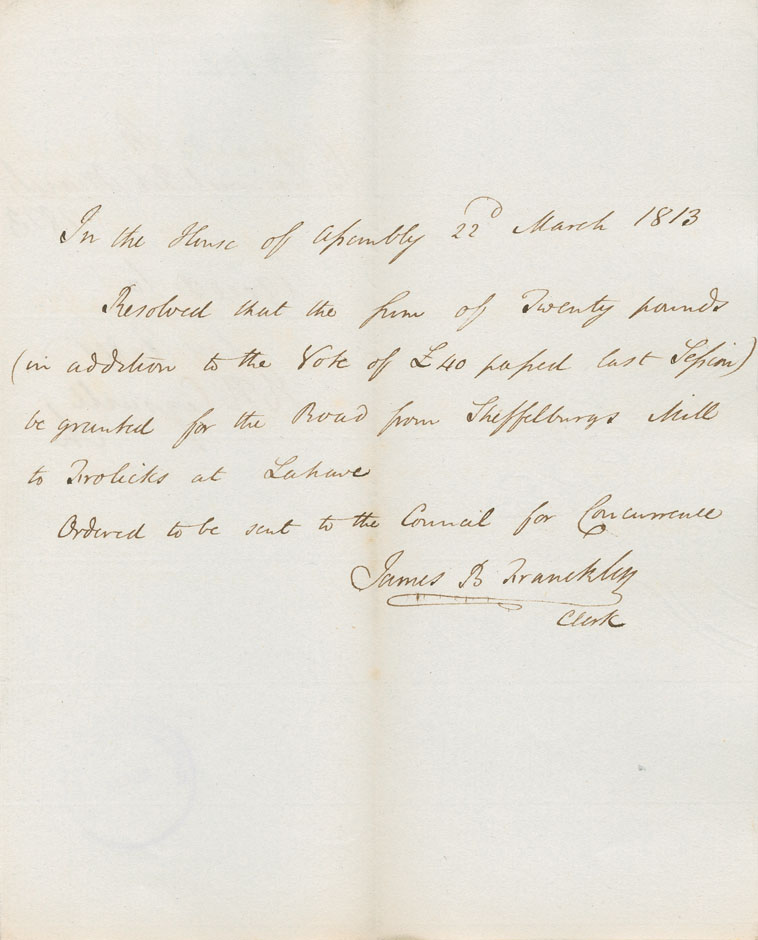 In the House of Assembly 22d March 1813
Resolved that the sum of Twenty pounds
(in addition to the Vote of £40 passed last Session)
be granted for the Road from Sheffelburgs Mill
to Frolicks at Lahave
Ordered to be sent to the Council for Concurrence
James B Francklin
Clerk